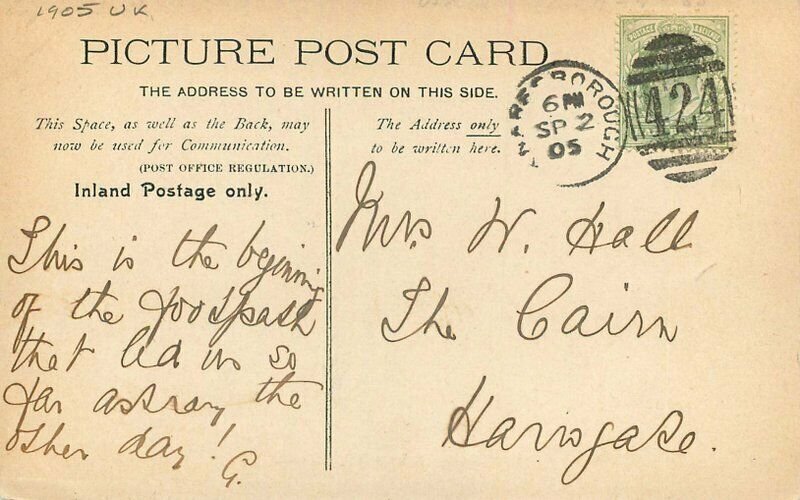 1905 UK
PICTURE POST CARD
THE ADDRESS TO BE WRITTEN ON THIS SIDE.
This Space, as well as the Back, may
now be used for Communication.
(POST OFFICE REGULATION.)
Inland Postage only.
The Address only
to be written here.
KNARESBOROUGH
6 PM
SP 2
05
424
POSTAGE
This is the beginning
of the footpath
that led us so
far astray the
other day!
G.
Mrs W. Hall
The Cairn
Harrogate.